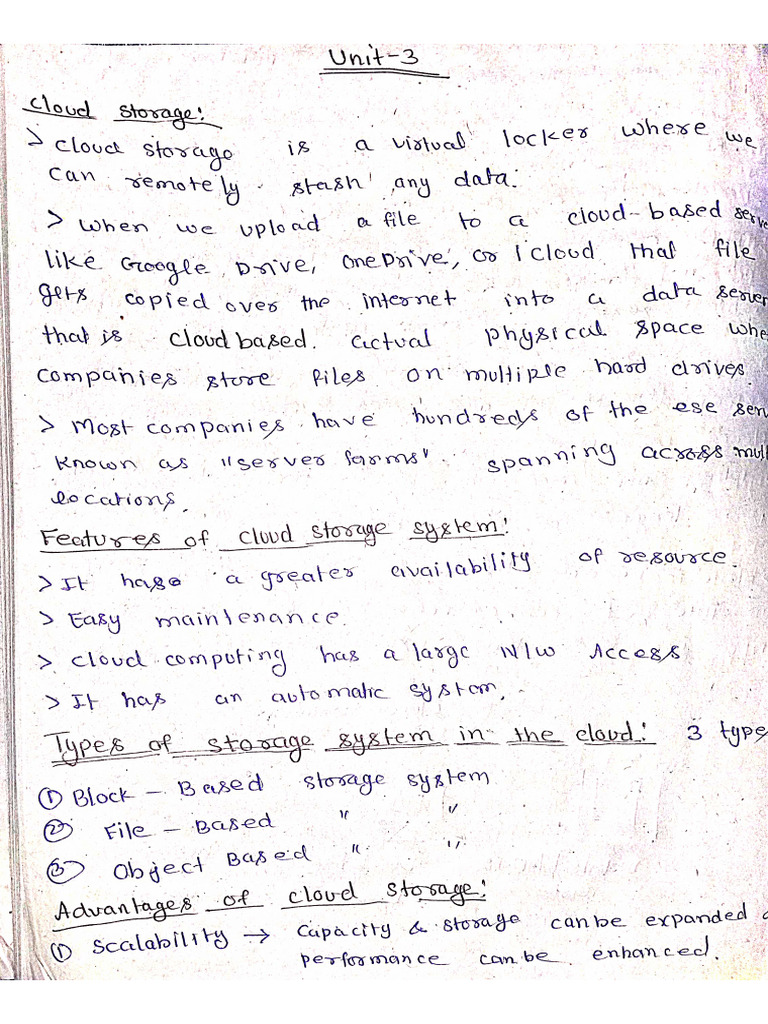 Unit-3
Cloud storage:
> cloud storage is a virtual locker where we
can remotely stash any data.
> when we upload a file to a cloud-based serve
like Google Drive, OneDrive, or Icloud that file
gets copied over the internet into a data server
that is cloud based. actual physical space whe
companies store files on multiple hard drives.
> Most companies have hundreds of the ese serv
known as "server farms" spanning across mult
locations.
Features of cloud storage system:
> It hase a greater availability of resource.
> Easy maintenance.
> cloud computing has a large N/w Access
> It has an automatic system.
Types of storage system in the cloud: 3 type
① Block - Based storage system
② File - Based " "
③ Object Based " "
Advantages of cloud storage:
① Scalability → Capacity & storage can be expanded
performance can be enhanced.